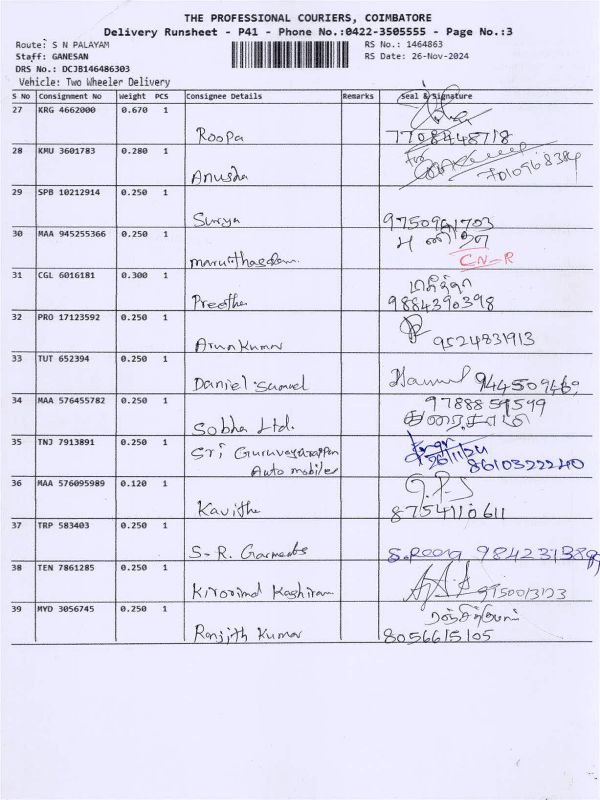 THE PROFESSIONAL COURIERS, COIMBATORE
Delivery Runsheet - P41 - Phone No.:0422-3505555 - Page No.:3
Route: S N PALAYAM RS No.: 1464863
Staff: GANESAN RS Date: 26-Nov-2024
DRS No.: DCJB146486303
Vehicle: Two Wheeler Delivery
S No Consignment No Weight PCS Consignee Details Remarks Seal & Signature
27 KRG 4662000 0.670 1
Roopa 7708448718
28 KMU 3601783 0.280 1 For
Anusha 7010968384
29 SPB 10212914 0.250 1
Surya 9750961703
30 MAA 945255366 0.250 1
CN-R
31 CGL 6016181 0.300 1
Preetha 9884390398
32 PRO 17123592 0.250 1
Arun Kumar 9524831913
33 TUT 652394 0.250 1
Daniel Samuel
34 MAA 576455782 0.250 1 9788859599
Sobha Ltd. துரைசாமி
35 TNJ 7913891 0.250 1 Sri Guruvayurappan 26/11/24
Auto mobiles 8610322240
36 MAA 576095989 0.120 1 G.P.S
Kavitha 8754110611
37 TRP 583403 0.250 1
S-R. Garments
38 TEN 7861285 0.250 1
Kirorimal Kashiram 9750013123
39 MYD 3056745 0.250 1
Ranjith Kumar 8056615105